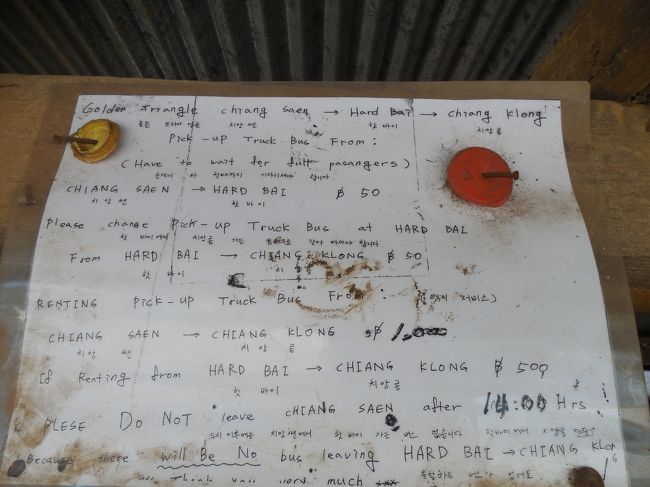 Golden Triangle chiang saen → Hard Bai → chiang Klong
치앙쎈 핫 바이 치앙콩
Pick-up Truck Bus From:
(Have to wait for full pasangers)
CHIANG SAEN → HARD BAI ฿ 50
치앙 쎈 핫 바이
Please change Pick-up Truck Bus at HARD BAI
핫 바이에서 치앙콩 가는
From HARD BAI → CHIANG KLONG ฿ 50
핫 바이 치앙콩
RENTING Pick-up Truck Bus From: 서비스)
CHIANG SAEN → CHIANG KLONG ฿ 1,000
치앙 쎈 치앙 콩
If Renting from HARD BAI → CHIANG KLONG ฿ 500
핫 바이 치앙콩
PLESE DO NOT leave CHIANG SAEN after 14:00 Hrs
핫 바이 가는 버스 없습니다 핫바이에서 치앙콩
Because there will Be No bus leaving HARD BAI → CHIANG KLONG
출발하는 버스가 없어요
Thank you very much